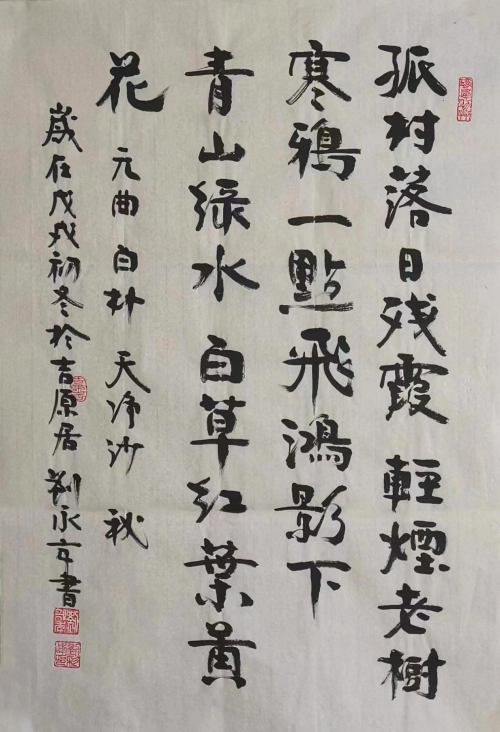 孤村落日残霞 輕煙老樹
寒鴉一點飛鴻影下
青山綠水 白草紅葉黃
花 元曲 白朴 天净沙 秋
歲在戊戌初冬於吉原居 刘永京書